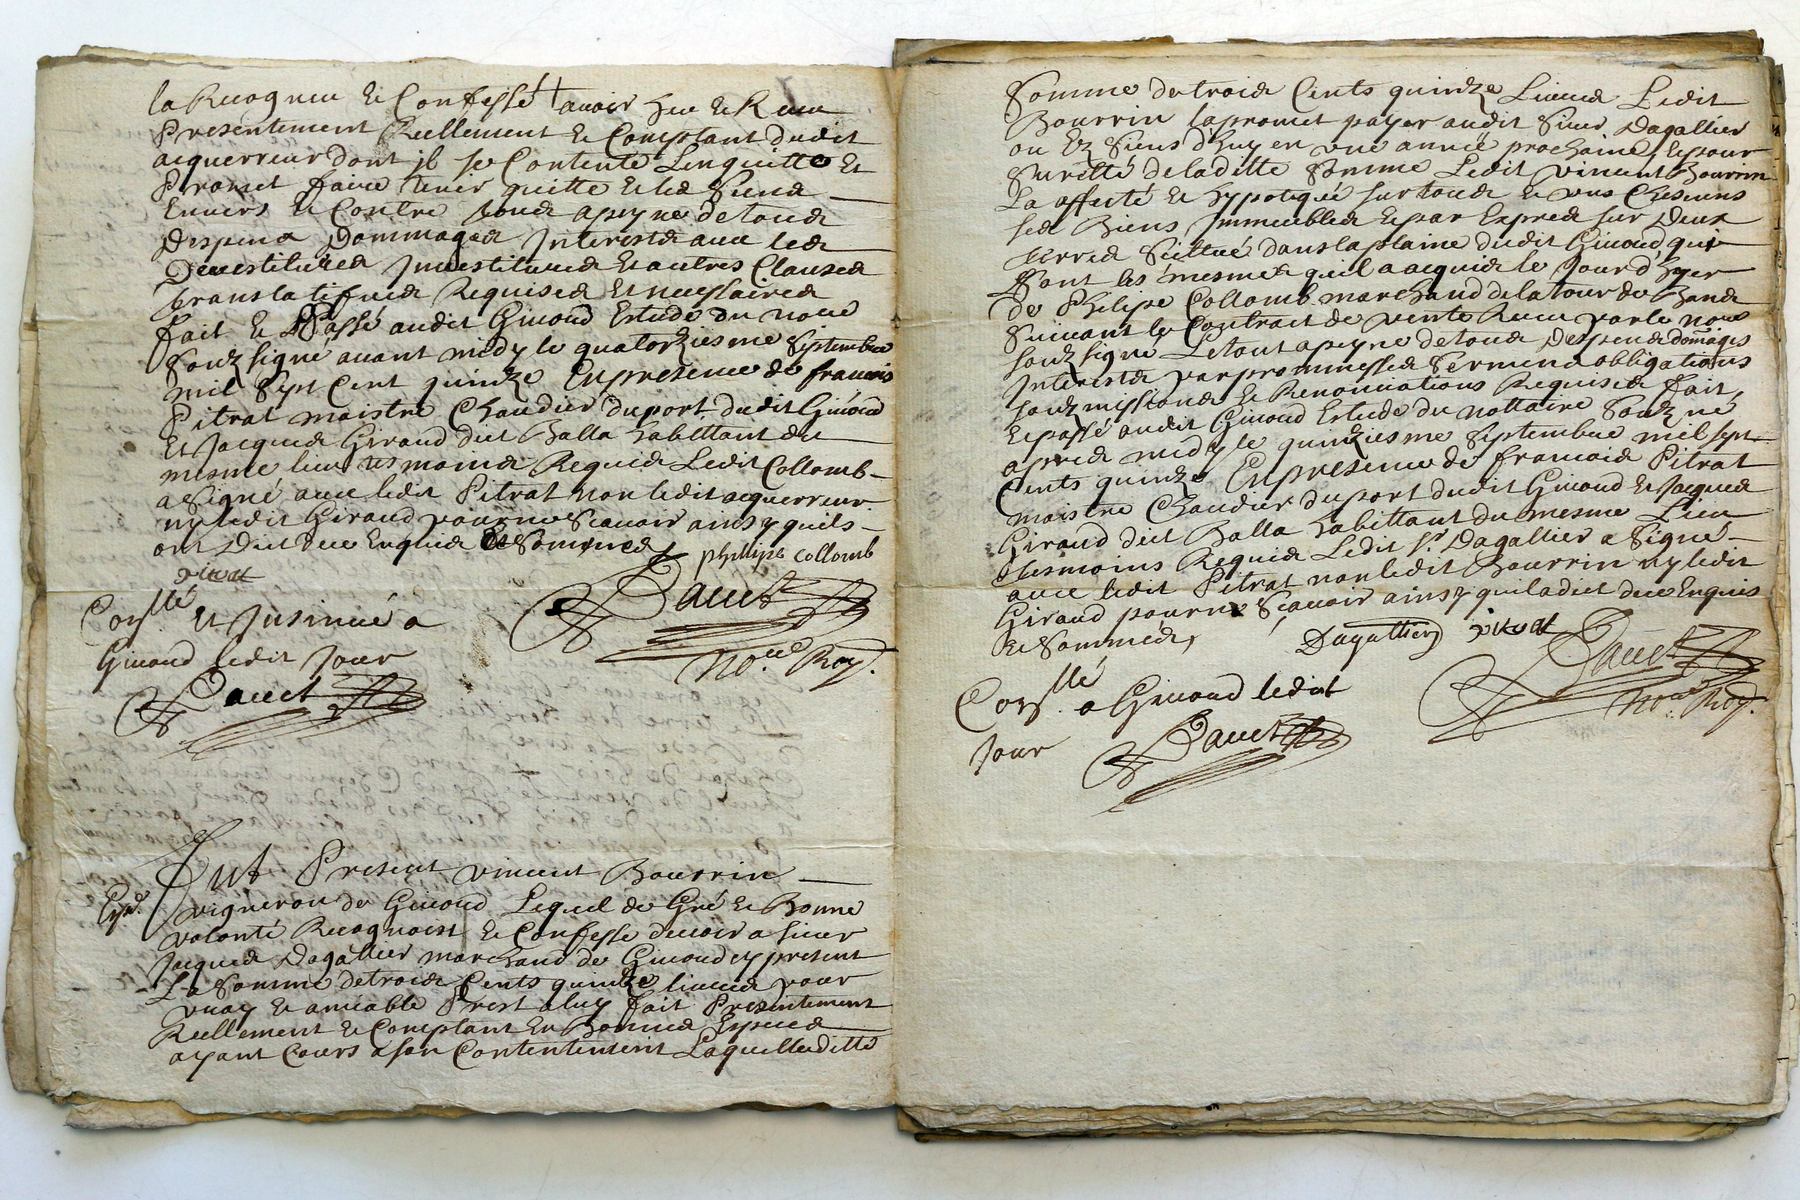 la Recogneu Et Confessé avoir heu et Receu
Presentement Reellement Et Comptant dudit
acquerreur dont il se Contente Lenquitte Et
Promet faire tenir quitte Et les Siens
Envers Et Contre tous apeyne de tous
Despens Dommages Interests avec les
Devestitures Investitures Et autres Clauses
translatifves Requises Et necessaires
fait Et Passé audit Givord Estude du No.re
Soubsigné avant midy le quatorziesme Septembre
mil Sept Cent quinze En presence de francois
Pitrat maistre Chaudier du port dudit Givord
Et Jacques Giraud dit Balla habittant du
mesme lieu tesmoins Requis Ledit Collomb
a Signé avec ledit Pitrat non ledit acquerreur
ny ledit Giraud pour ne Scavoir ainsy quils
ont Dict de ce Enquis Et Sommés
phillipe collomb
pitrat
Dauet
No.re Roy.
Con.llé Et Insinué a
Givord ledit Jour
Dauet
Fut Present vincent Bourrin
Exp.d
vigneron de Givord Lequel de Gré Et Bonne
volonté Recognoist Et Confesse devoir a sieur
Jacques Dagallier marchand de Givord cy present
La Somme de trois Cents quinze livres pour
vray Et amiable Prest a luy fait Presentement
Reellement Et Comptant En Bonnes Especes
ayant Cours a son Contentement Laquelle ditte
Somme de trois Cents quinze Livres Ledit
Bourrin la promet payer audit Sieur Dagallier
ou Ez Siens d'huy en une année prochaine, Et pour
Suretté de laditte Somme Ledit vincent Bourrin
La affecté Et hypotequé sur tous Et uns Chescuns
ses Biens Immeubles Et par Expres sur Deux
terres Scittué dans la plaine dudit Givord qui
sont les mesmes quil a acquis le Jour d'hyer
de Phelipe Collomb marchand de la tour de
Suivant le Contract de vente Receu par le No.re
soubsigné Le tout apeyne de tous Despens domages
Interests par prommesses Serment obligations
soubzmissions Et Renonciations Requises fait
Et passé audit Givord Estude du nottaire Soubz.né
apres midy le quinziesme Septembre mil sept
Cents quinze En presence de francois Pitrat
maistre Chaudier du port dudit Givord Et Jacques
Giraud dit Balla habittant du mesme Lieu
tesmoins Requis Ledit s.r Dagallier a Signé
avec ledit Pitrat non ledit Bourrin ny ledit
Giraud pour ne Scavoir ainsy quil a dict de ce Enquis
Et Sommés,
Dagallier pitrat
Dauet
No.re Roy.
Con.llé a Givord ledit
Jour
Dauet